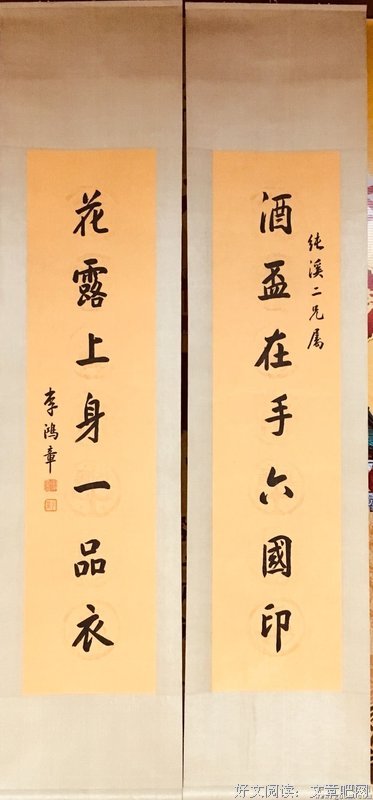 纯溪二兄屬
酒盃在手六國印
花露上身一品衣
李鴻章
好文阅读：文章吧网